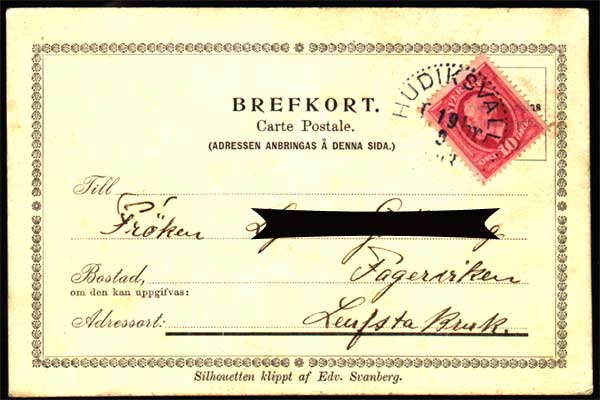 HUDIKSVALL
19
BREFKORT.
Carte Postale.
(ADRESSEN ANBRINGAS Å DENNA SIDA.)
10 ÖRE
Till
Fröken
Bostad,
Fagerviken
om den kan uppgifvas:
Adressort:
Leufsta Bruk.
Silhouetten klippt af Edv. Svanberg.